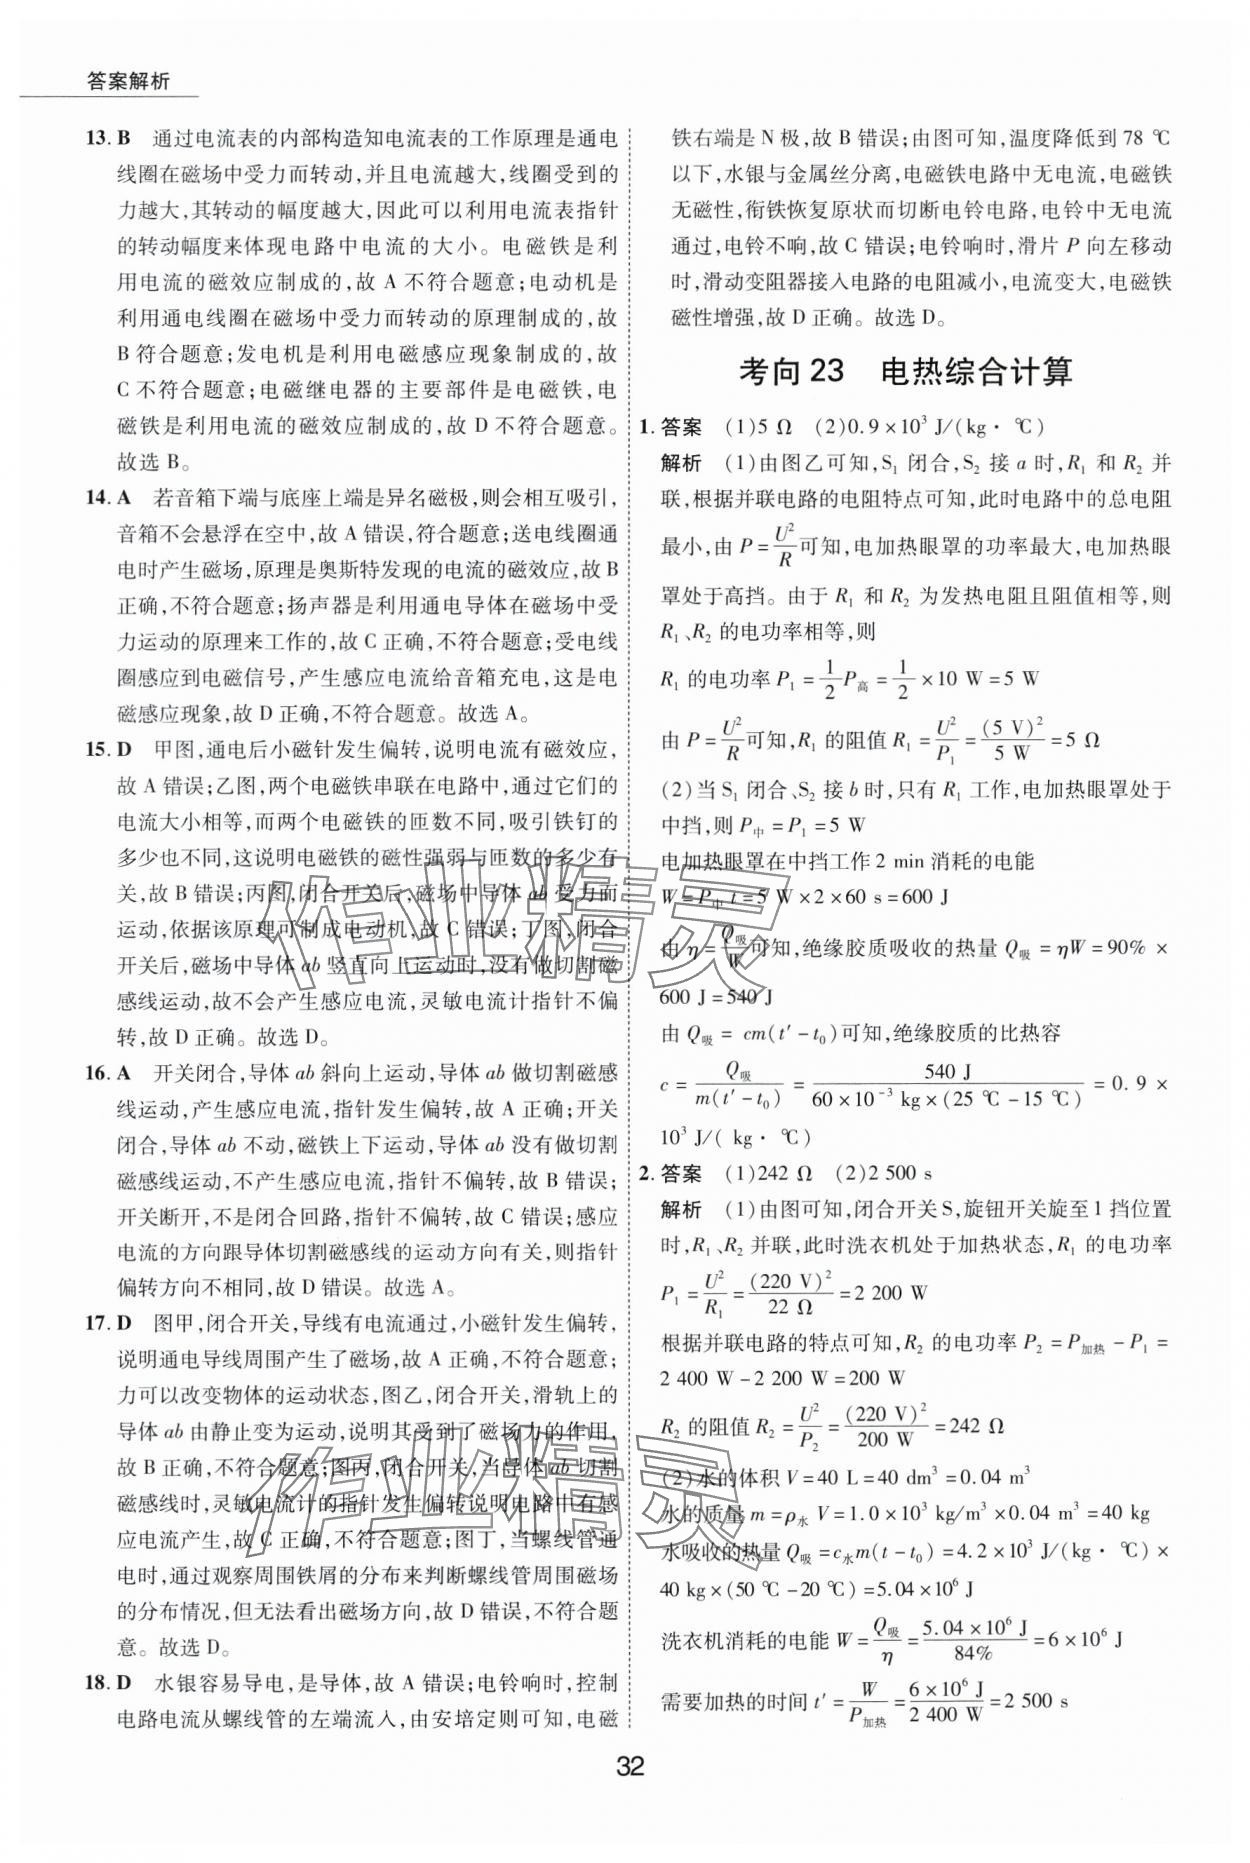 答案解析
13. B 通过电流表的内部构造知电流表的工作原理是通电
线圈在磁场中受力而转动,并且电流越大,线圈受到的
力越大,其转动的幅度越大,因此可以利用电流表指针
的转动幅度来体现电路中电流的大小。电磁铁是利
用电流的磁效应制成的,故 A 不符合题意;电动机是
利用通电线圈在磁场中受力而转动的原理制成的,故
B 符合题意;发电机是利用电磁感应现象制成的,故
C 不符合题意;电磁继电器的主要部件是电磁铁,电
磁铁是利用电流的磁效应制成的,故 D 不符合题意。
故选 B。
14. A 若音箱下端与底座上端是异名磁极,则会相互吸引,
音箱不会悬浮在空中,故 A 错误,符合题意;送电线圈通
电时产生磁场,原理是奥斯特发现的电流的磁效应,故 B
正确,不符合题意;扬声器是利用通电导体在磁场中受
力运动的原理来工作的,故 C 正确,不符合题意;受电线
圈感应到电磁信号,产生感应电流给音箱充电,这是电
磁感应现象,故 D 正确,不符合题意。故选 A。
15. D 甲图,通电后小磁针发生偏转,说明电流有磁效应,
故 A 错误;乙图,两个电磁铁串联在电路中,通过它们的
电流大小相等,而两个电磁铁的匝数不同,吸引铁钉的
多少也不同,这说明电磁铁的磁性强弱与匝数的多少有
关,故 B 错误;丙图,闭合开关后,磁场中导体 ab 受力而
运动,依据该原理可制成电动机,故 C 错误;丁图,闭合
开关后,磁场中导体 ab 竖直向上运动时,没有做切割磁
感线运动,故不会产生感应电流,灵敏电流计指针不偏
转,故 D 正确。故选 D。
16. A 开关闭合,导体 ab 斜向上运动,导体 ab 做切割磁感
线运动,产生感应电流,指针发生偏转,故 A 正确;开关
闭合,导体 ab 不动,磁铁上下运动,导体 ab 没有做切割
磁感线运动,不产生感应电流,指针不偏转,故 B 错误;
开关断开,不是闭合回路,指针不偏转,故 C 错误;感应
电流的方向跟导体切割磁感线的运动方向有关,则指针
偏转方向不相同,故 D 错误。故选 A。
17. D 图甲,闭合开关,导线有电流通过,小磁针发生偏转,
说明通电导线周围产生了磁场,故 A 正确,不符合题意;
力可以改变物体的运动状态,图乙,闭合开关,滑轨上的
导体 ab 由静止变为运动,说明其受到了磁场力的作用,
故 B 正确,不符合题意;图丙,闭合开关,当导体 ab 切割
磁感线时,灵敏电流计的指针发生偏转说明电路中有感
应电流产生,故 C 正确,不符合题意;图丁,当螺线管通
电时,通过观察周围铁屑的分布来判断螺线管周围磁场
的分布情况,但无法看出磁场方向,故 D 错误,不符合题
意。故选 D。
18. D 水银容易导电,是导体,故 A 错误;电铃响时,控制
电路电流从螺线管的左端流入,由安培定则可知,电磁
铁右端是 N 极,故 B 错误;由图可知,温度降低到 78 ℃
以下,水银与金属丝分离,电磁铁电路中无电流,电磁铁
无磁性,衔铁恢复原状而切断电铃电路,电铃中无电流
通过,电铃不响,故 C 错误;电铃响时,滑片 P 向左移动
时,滑动变阻器接入电路的电阻减小,电流变大,电磁铁
磁性增强,故 D 正确。故选 D。
考向 23 电热综合计算
1. 答案 (1)5 Ω (2)0.9×10³ J/(kg·℃)
解析 (1)由图乙可知,S₁ 闭合,S₂ 接 a 时,R₁ 和 R₂ 并
联,根据并联电路的电阻特点可知,此时电路中的总电阻
最小,由 P=U²/R可知,电加热眼罩的功率最大,电加热眼
罩处于高挡。由于 R₁ 和 R₂ 为发热电阻且阻值相等,则
R₁、R₂ 的电功率相等,则
R₁ 的电功率 P₁=1/2P高=1/2×10 W=5 W
由 P=U²/R可知,R₁ 的阻值 R₁=U²/P₁=(5 V)²/5 W=5 Ω
(2)当 S₁ 闭合、S₂ 接 b 时,只有 R₁ 工作,电加热眼罩处于
中挡,则 P中=P₁=5 W
电加热眼罩在中挡工作 2 min 消耗的电能
W=P中t=5 W×2×60 s=600 J
由 η=Q吸/W可知,绝缘胶质吸收的热量 Q吸=ηW=90%×
600 J=540 J
由 Q吸=cm(t′-t₀)可知,绝缘胶质的比热容
c=Q吸/m(t′-t₀)=540 J/60×10⁻³ kg×(25 ℃-15 ℃)=0.9×
10³ J/(kg·℃)
2. 答案 (1)242 Ω (2)2 500 s
解析 (1)由图可知,闭合开关 S,旋钮开关旋至 1 挡位置
时,R₁、R₂ 并联,此时洗衣机处于加热状态,R₁ 的电功率
P₁=U²/R₁=(220 V)²/22 Ω=2 200 W
根据并联电路的特点可知,R₂ 的电功率 P₂=P加热-P₁=
2 400 W-2 200 W=200 W
R₂ 的阻值 R₂=U²/P₂=(220 V)²/200 W=242 Ω
(2)水的体积 V=40 L=40 dm³=0.04 m³
水的质量 m=ρ水V=1.0×10³ kg/m³×0.04 m³=40 kg
水吸收的热量 Q吸=c水m(t-t₀)=4.2×10³ J/(kg·℃)×
40 kg×(50 ℃-20 ℃)=5.04×10⁶ J
洗衣机消耗的电能 W=Q吸/η=5.04×10⁶ J/84%=6×10⁶ J
需要加热的时间 t′=W/P加热=6×10⁶ J/2 400 W=2 500 s
作业精灵
作业精灵
32